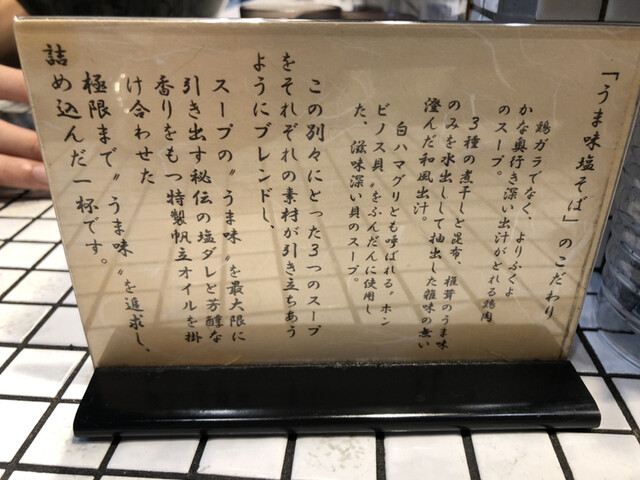 「うま味塩そば」のこだわり
鶏ガラでなく、よりふくよ
かな奥行き深い出汁がとれる鶏肉
のスープ。
3種の煮干しと昆布、椎茸のうま味
のみを水出しして抽出した雑味の無い
澄んだ和風出汁。
白ハマグリとも呼ばれる〝ホン
ビノス貝〟をふんだんに使用し
た、滋味深い貝のスープ。
この別々にとった3つのスープ
をそれぞれの素材が引き立ちあう
ようにブレンドし、
スープの〝うま味〟を最大限に
引き出す秘伝の塩ダレと芳醇な
香りをもつ特製帆立オイルを掛
け合わせた
極限まで〝うま味〟を追求し、
詰め込んだ一杯です。